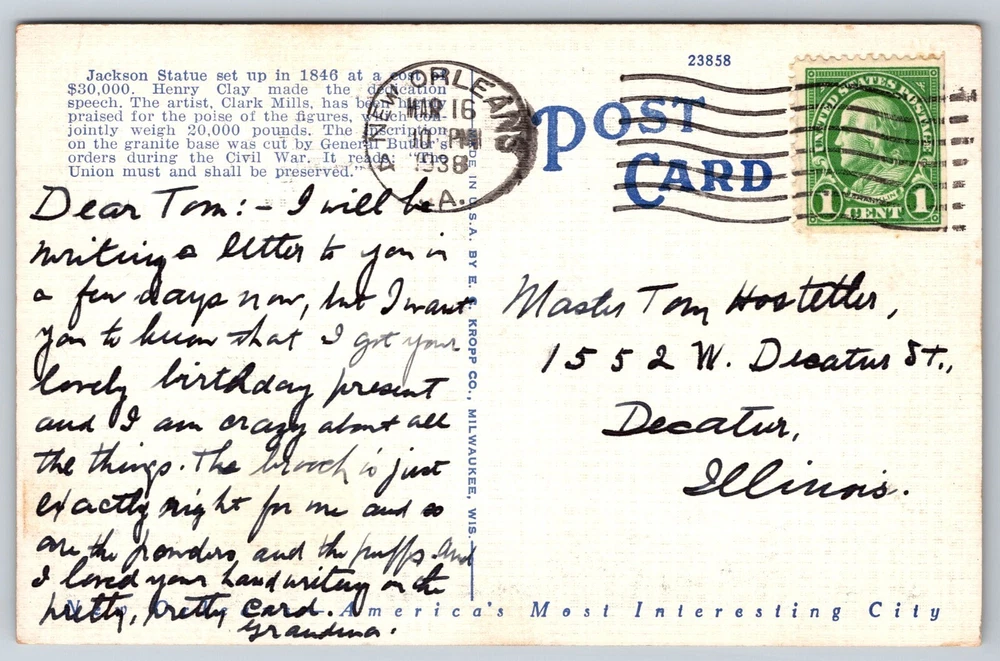 Jackson Statue set up in 1846 at a cost of
$30,000. Henry Clay made the dedication
speech. The artist, Clark Mills, has been highly
praised for the poise of the figures, which con-
jointly weigh 20,000 pounds. The inscription
on the granite base was cut by General Butler's
orders during the Civil War. It reads "The
Union must and shall be preserved."
NEW ORLEANS
MAR 16
10 PM
1938
LA.
23858
POST
CARD
UNITED STATES POSTAGE
1 CENT 1
Dear Tom:- I will be
writing a letter to you in
a few days now, but I want
you to know that I got your
lovely birthday present
and I am crazy about all
the things. The brooch is just
exactly right for me and so
are the powders, and the puffs. And
I loved your handwriting on the
pretty, pretty card.
Grandma.
MADE IN U.S.A. BY E. C. KROPP CO., MILWAUKEE, WIS.
Master Tom Hostetler,
1552 W. Decatur St.,
Decatur,
Illinois.
America's Most Interesting City